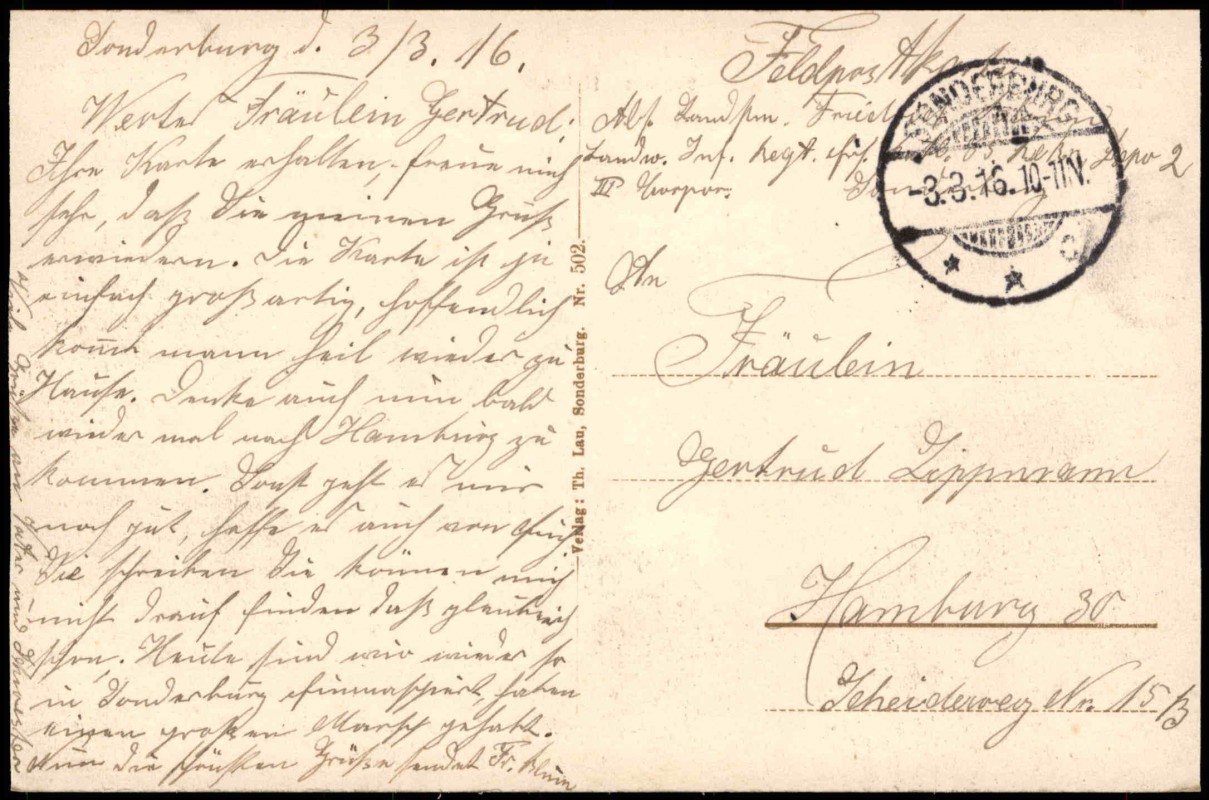 Sonderburg d. 3/3. 16.
Wertes Fräulein Gertrud!
Ihre Karte erhalten, freue mich
sehr, daß Sie meinen Gruß
erwiedern. Die Karte ist ja
einfach großartig, hoffendlich
komm mann heil wieder zu
Hause. Denke auch nun bald
wieder mal nach Hamburg zu
kommen. Sonst geht es mir
noch gut, hoffe es auch von Euch
Sie schreiben Sie können mich
nicht drauf finden daß glaube ich
schon. Heute sind wir wieder so
in Sonderburg einmaschiert, haben
einen großen Marsch gehabt.
Nun die schönsten Grüße sendet Fr. Blum
Viele Grüße an Vater und Schwester
Verlag: Th. Lau, Sonderburg. Nr. 502.
Feldpostkarte
Abs. Landstm.
Landw. Inf. Regt. Depo 2
III Korpor.
SONDERBURG
-3.3.16.10-11N.
* * c
An
Fräulein
Gertrud Lippmann
Hamburg 30
Scheideweg Nr. 15/3